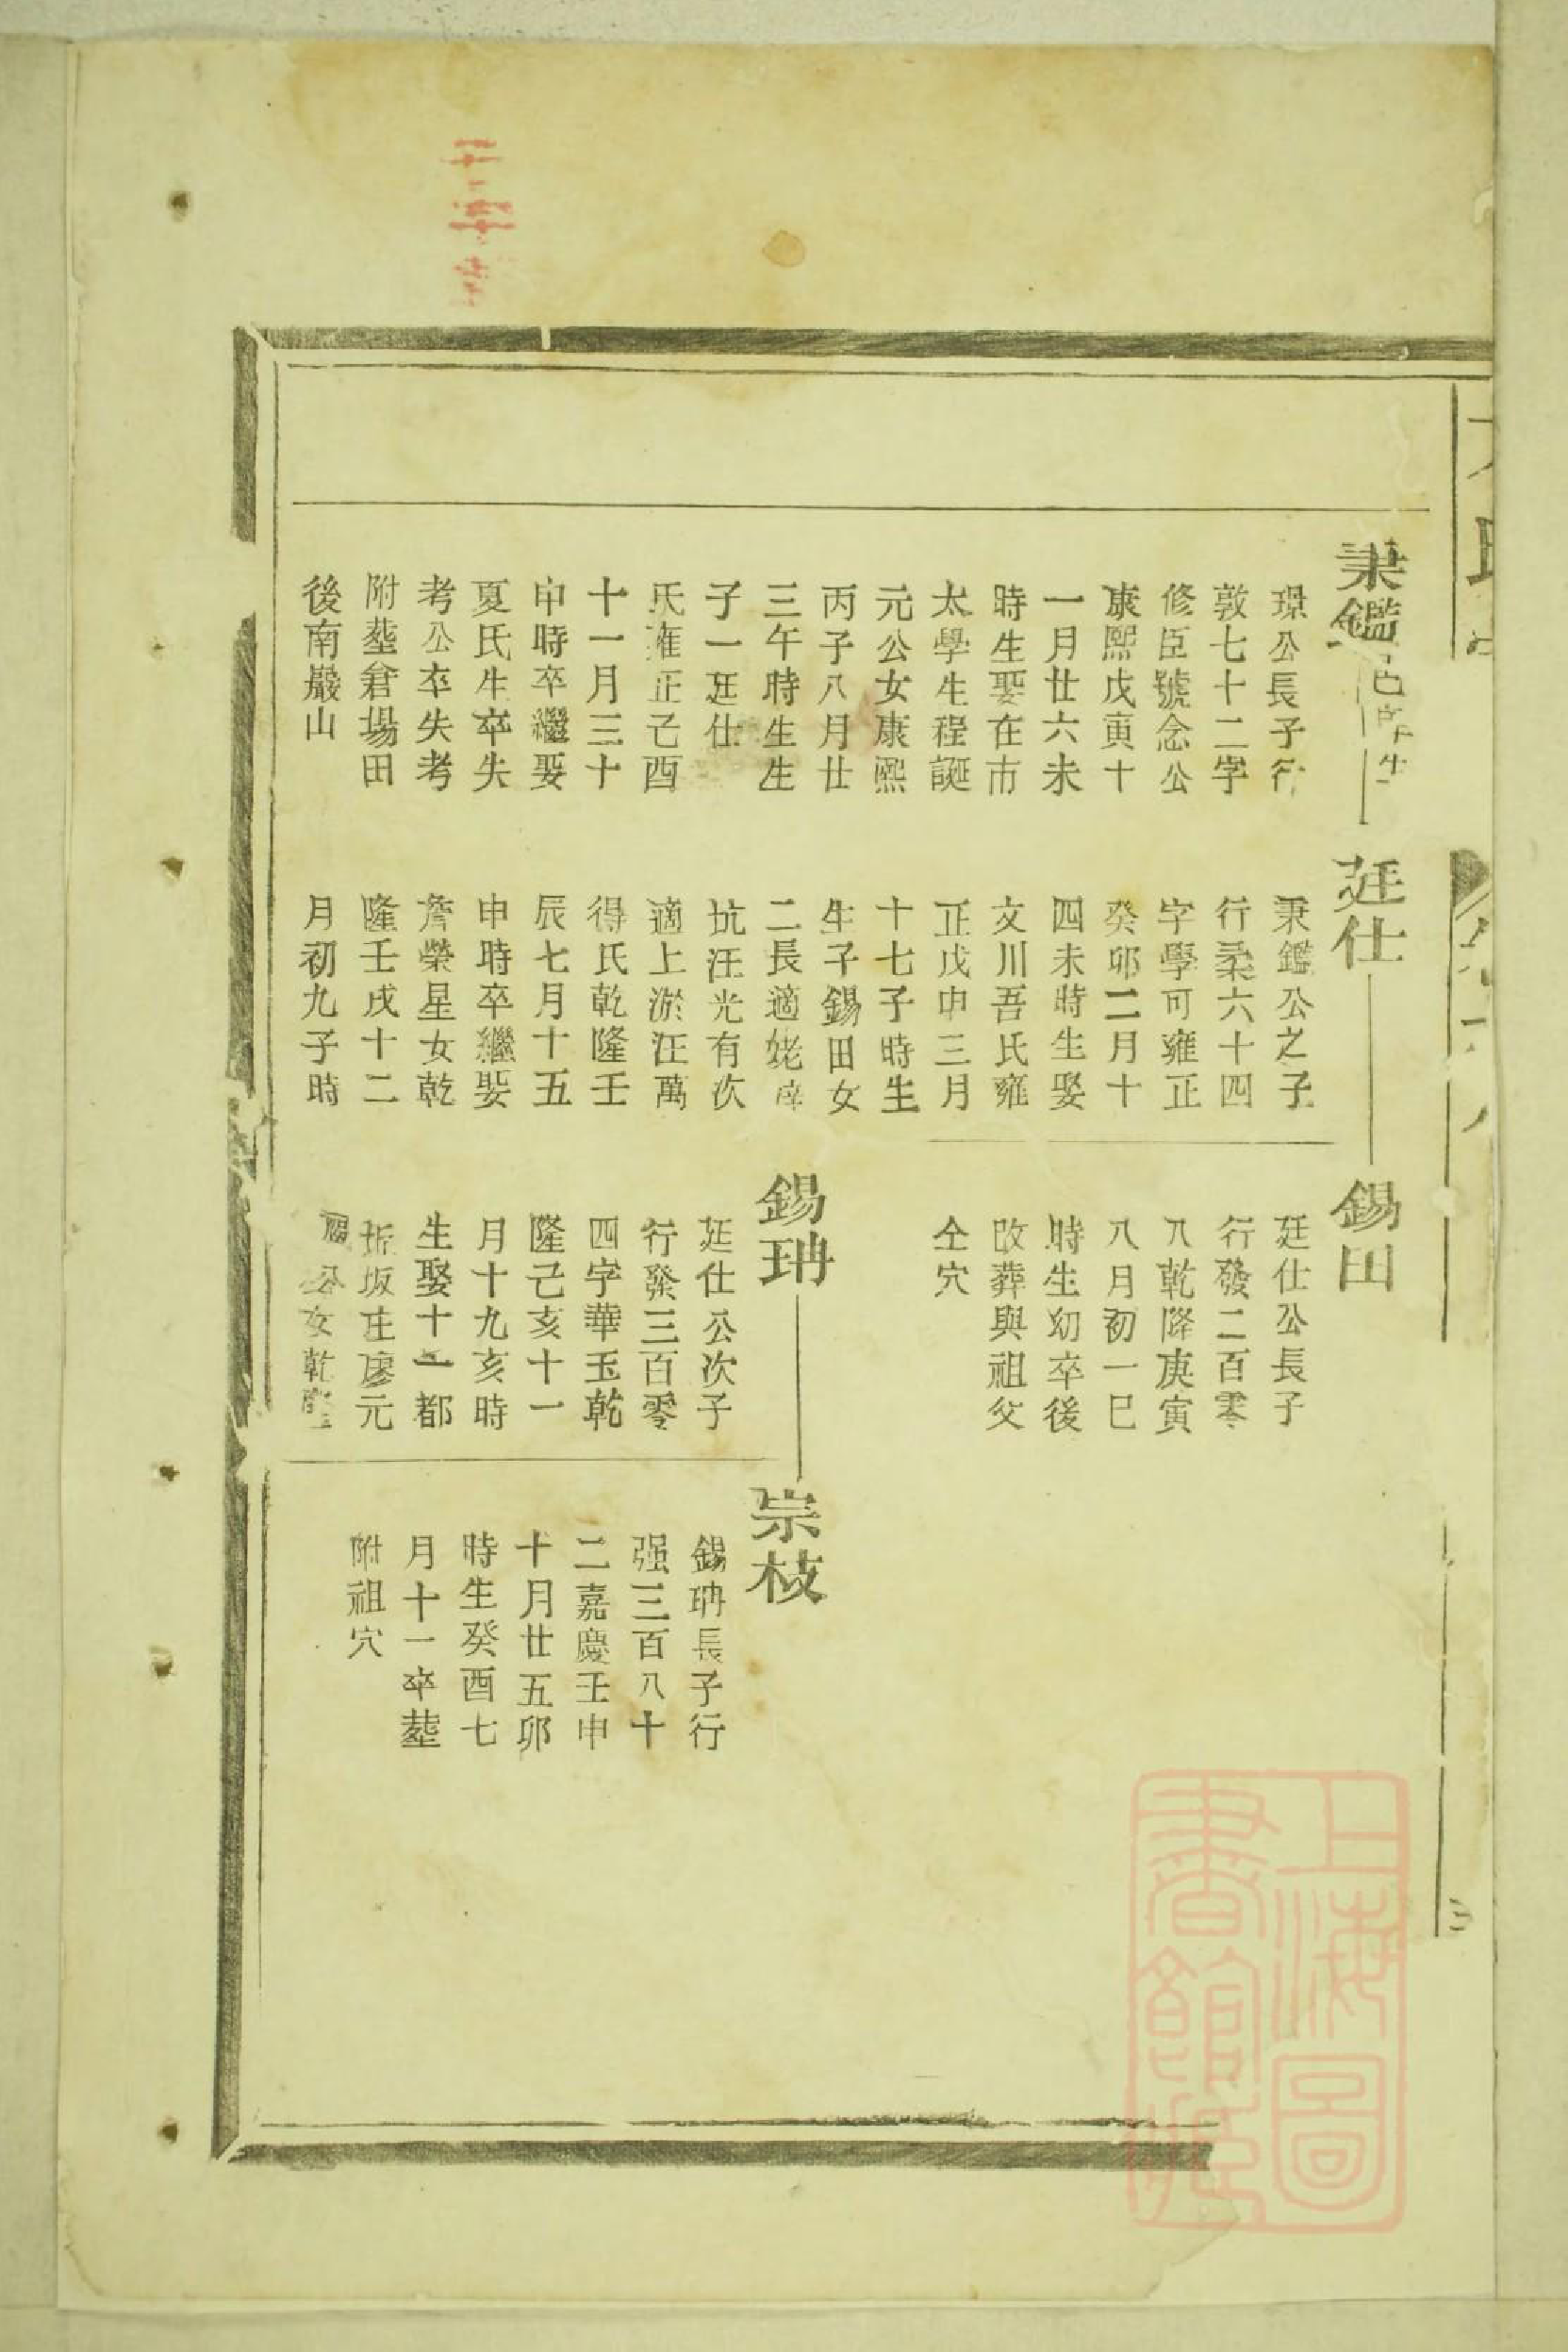 秉鑑邑庠生
璟公長子行
敦七十二字
修臣號念公
康熙戊寅十
一月廿六未
時生娶在市
太學生程誕
元公女康熙
丙子八月廿
三午時生生
子一廷仕
氏雍正己酉
十一月三十
申時卒繼娶
夏氏生卒失
考公卒失考
附塟倉場田
後南巖山
廷仕
秉鑑公之子
行柔六十四
字學可雍正
癸卯二月十
四未時生娶
文川吾氏雍
正戊申三月
十七子時生
生子錫田女
二長適姥
坑汪光有次
適上淤汪萬
得氏乾隆壬
辰七月十五
申時卒繼娶
詹榮星女乾
隆壬戌十二
月初九子時
錫田
廷仕公長子
行發二百零
八乾隆庚寅
八月初一巳
時生幼卒後
改葬與祖父
仝穴
錫珃
廷仕公次子
行發三百零
四字華玉乾
隆己亥十一
月十九亥時
生娶十一都
坂庄廖元
公女乾隆
崇枝
錫珃長子行
强三百八十
二嘉慶壬申
十月廿五卯
時生癸酉七
月十一卒塟
附祖穴
上海圖
書館藏